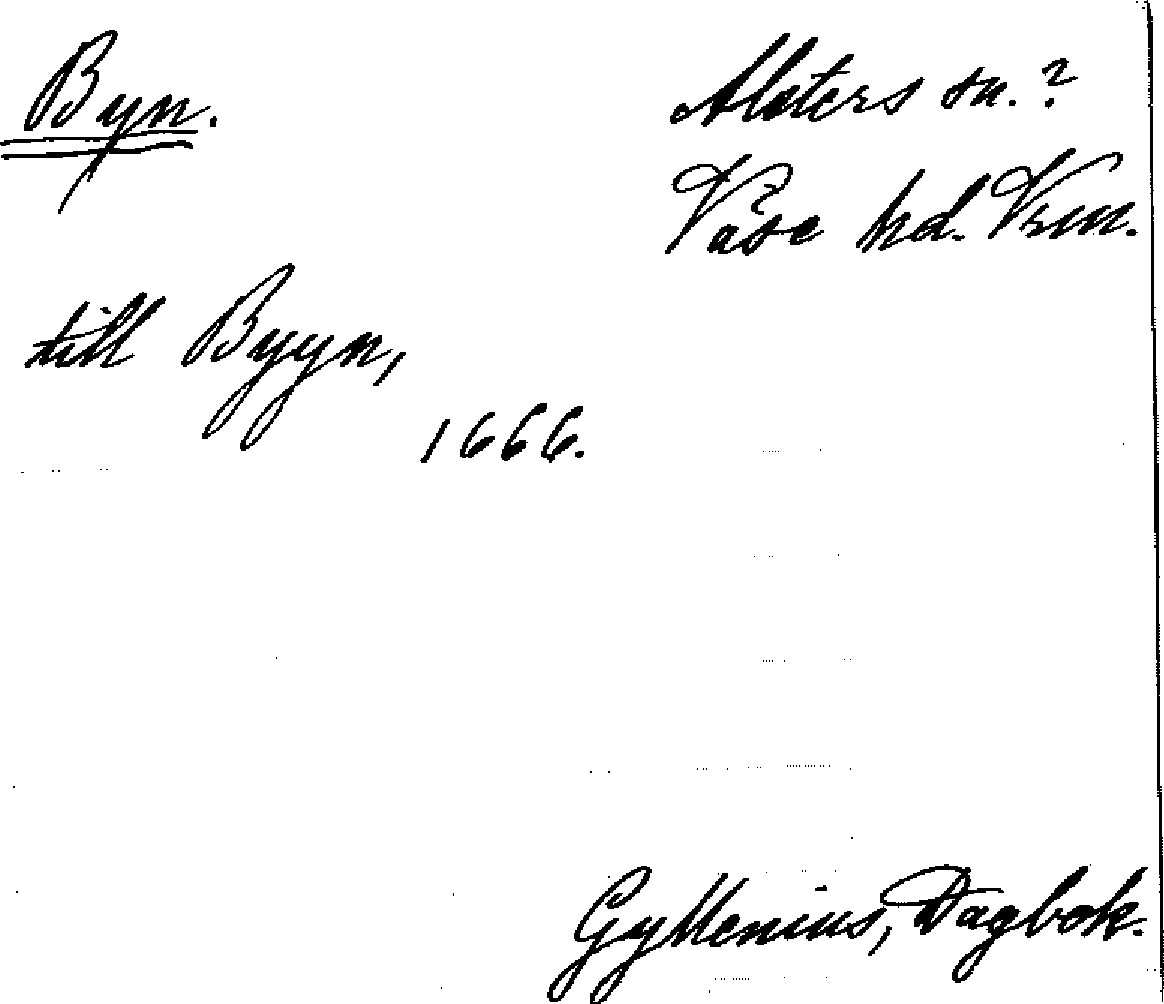 Byn.
Alsters sn.?
Väse hd. Vrm.
till Byyn,
1666.
Gyllenius, Dagbok.